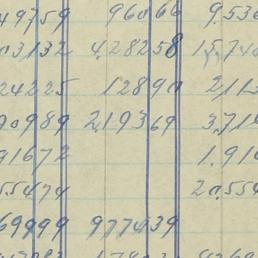 49759 96066 9.536
03132 428258 15,740
24225 12890 211
90989 219369 3,714
91672 1.914
55474 20,554
69999 977439